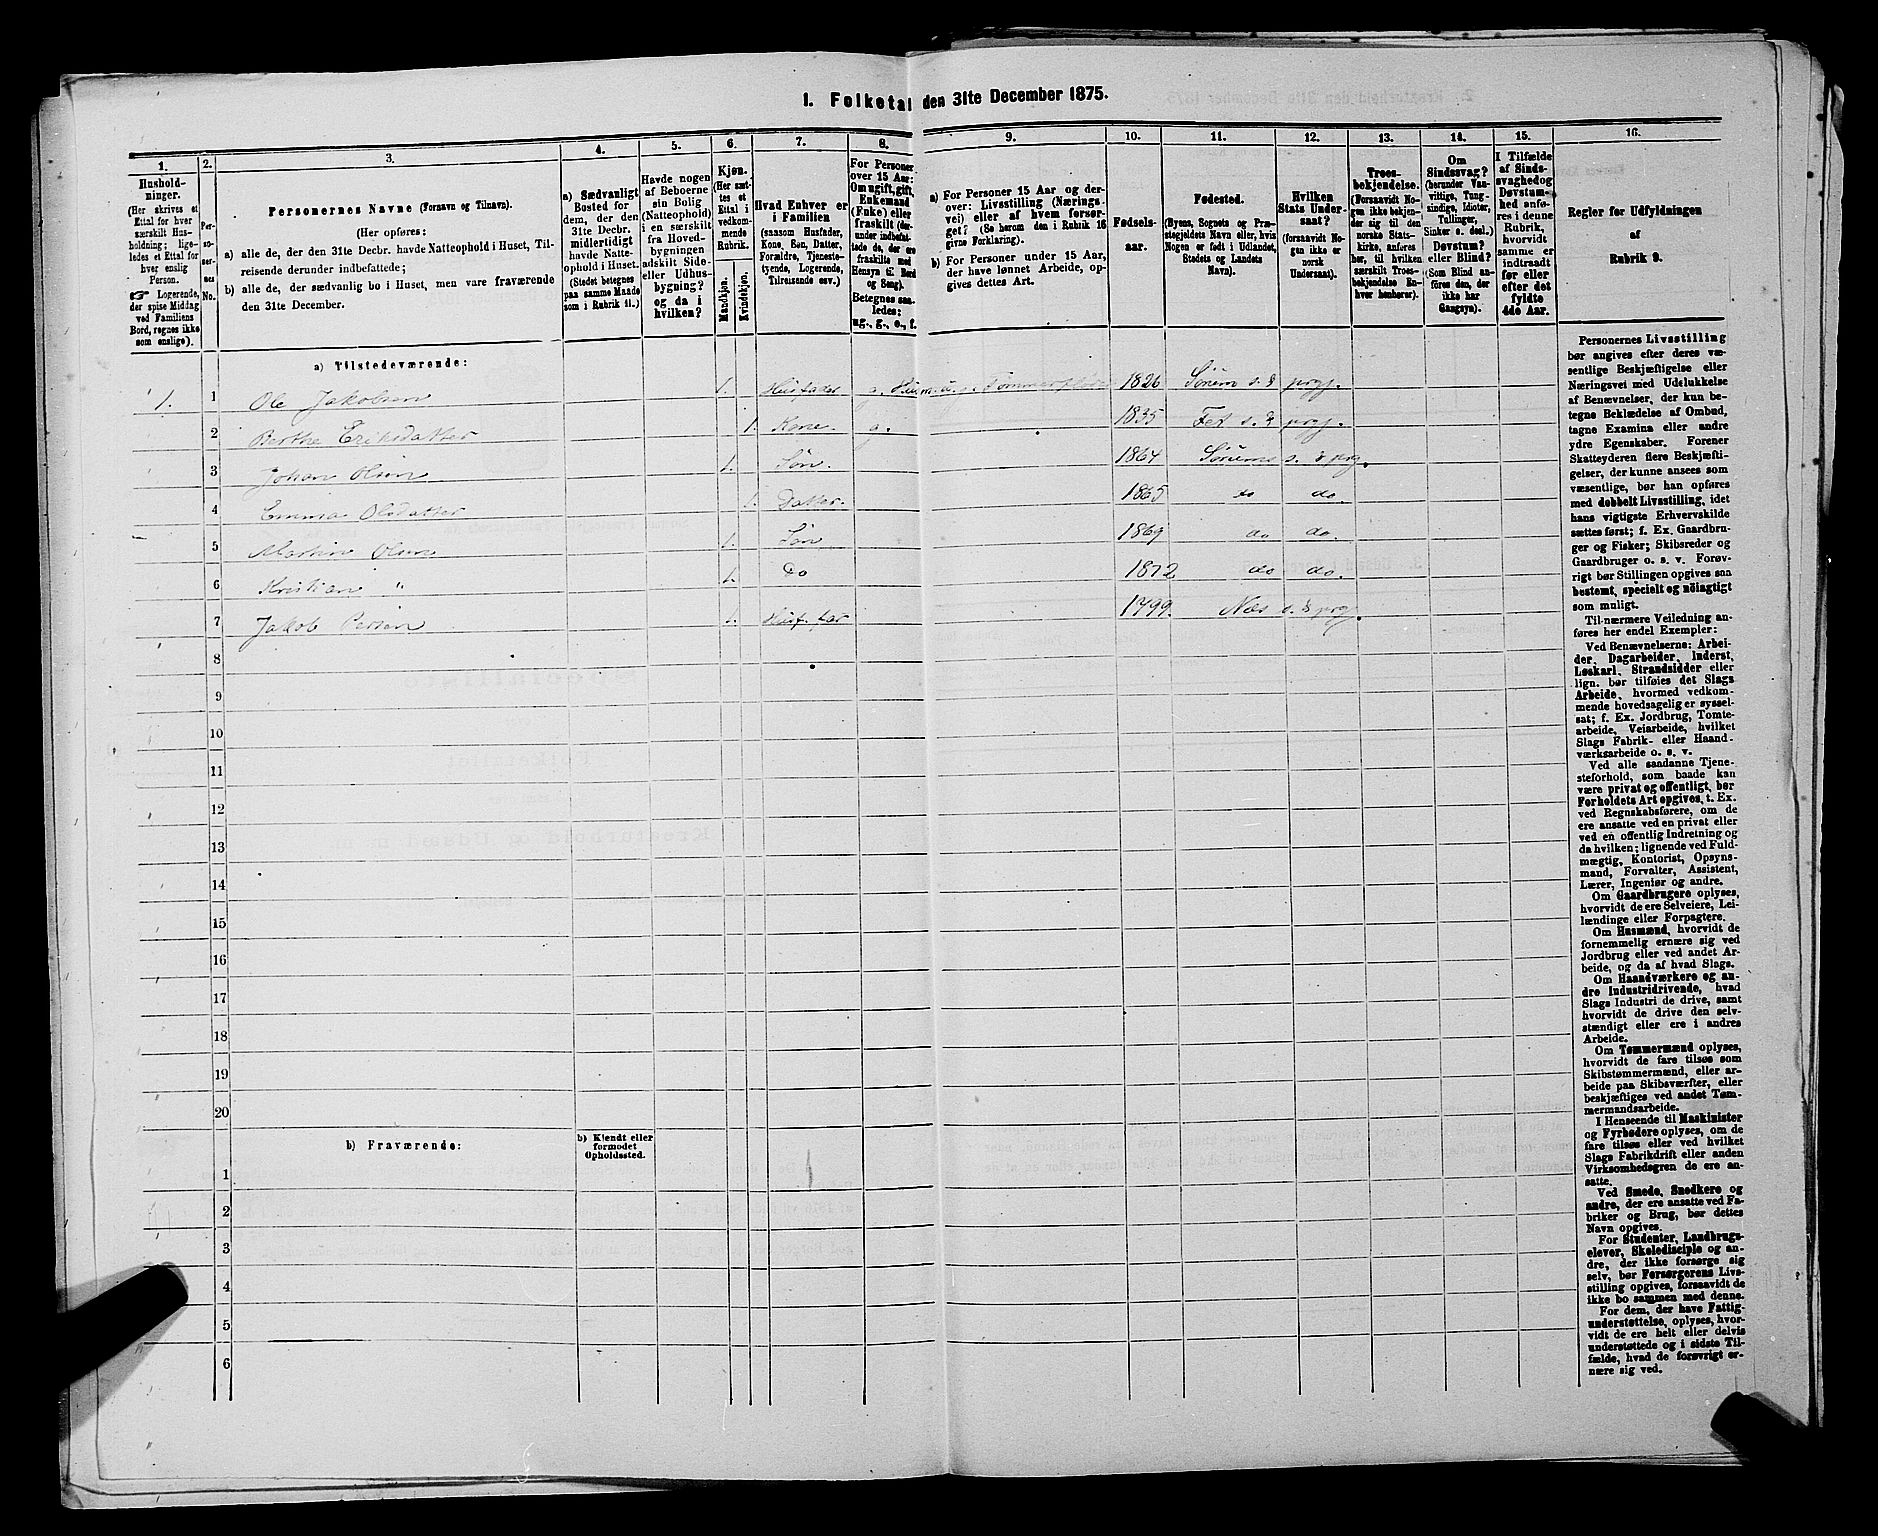 1. Folketal den 31te December 1875.
1.
Hushold-
ninger.
(Her skrives et
Ettal for hver
særskilt Hus-
holdning; lige-
ledes et Ettal for
hver enslig
Person.
☞ Logerende,
der spise Middag
ved Familiens
Bord, regnes ikke
som enslige).
2.
Per-
so-
ner-
nes
No.
3.
Personernes Navne (Fornavn og Tilnavn).
(Her opføres:
a) alle de, der den 31te Decbr. havde Natteophold i Huset, Til-
reisende derunder indbefattede;
b) alle de, der sædvanlig bo i Huset, men vare fraværende
den 31te December.
4.
a) Sædvanligt
Bosted for
dem, der den
31te Decbr.
midlertidigt
havde Natte-
ophold i Huset.
(Stedet betegnes
paa samme Maade
som i Rubrik 11.)
5.
Havde nogen
af Beboerne
sin Bolig
(Natteophold)
i en særskilt
fra Hoved-
bygningen
adskilt Side-
eller Udhus-
bygning?
og da i
hvilken?
6.
Kjøn.
(Her sæt-
tes et
Ettal i
vedkom-
mende
Rubrik.
Mandkjøn.
Kvindekjøn.
7.
Hvad Enhver er
i Familien
(saasom Husfader,
Kone, Søn, Datter,
Forældre, Tjeneste-
tyende, Logerende,
Tilreisende osv.)
8.
For Personer
over 15 Aar:
Om ugift, gift,
Enkemand
(Enke) eller
fraskilt (der-
under indbefat-
tede de, der ere
fraskilte med
Hensyn til Bord
og Seng).
Betegnes saa-
ledes:
ug., g., e., f.
9.
a) For Personer 15 Aar og der-
over: Livsstilling (Nærings-
vei) eller af hvem forsør-
get? (Se herom den i Rubrik 16
givne Forklaring).
b) For Personer under 15 Aar,
der have lønnet Arbeide, op-
gives dettes Art.
10.
Fødsels-
aar.
11.
Fødested.
(Byens, Sognets og Præ-
stegjeldets Navn eller, hvis
Nogen er født i Udlandet,
Stedets og Landets
Navn).
12.
Hvilken
Stats Under-
saat?
(forsaavidt No-
gen ikke er
norsk
Undersaat).
13.
Troes-
bekjendelse.
(Forsaavidt No-
gen ikke bekjen-
der sig til den
norske Stats-
kirke, anføres
her, til hvilken
særskilt Troes-
bekjendelse En-
hver henhører).
14.
Om
Sindssvag?
(herunder Van-
vittige, Tung-
sindige, Idioter,
Tullinger,
Sinker o. desl.)
Døvstum?
eller Blind?
(Som Blind an-
føres den, der
ikke har
Gangsyn).
15.
I Tilfælde
af Sinds-
svaghed og
Døvstum-
hed anfø-
res i denne
Rubrik,
hvorvidt
samme er
indtraadt
før eller
efter det
fyldte
4de Aar.
16.
Regler for Udfyldningen
af
Rubrik 9.
a) Tilstedeværende:
1. 1 Ole Jakobsen 1. Husfader g. Husm. u. j. Tømmerfløder 1826 Sørum s. & prgj.
2 Berthe Eriksdatter 1. Kone g. 1835 Fet s. & prgj.
3 Johan Olsen 1. Søn. 1864 Sørums s. & prg.
4 Emma Olsdatter 1. Datter. 1865 do do.
5 Martin Olsen 1. Søn 1869 do do.
6 Kristian " 1. Do 1872 do do.
7 Jakob Persen 1. Husf. far 1799. Næs s. & prg.
8
9
10
11
12
13
14
15
16
17
18
19
20
b) Fraværende:
b) Kjendt eller
formodet
Opholdssted.
1
2
3
4
5
6
Personernes Livsstilling
bør angives efter deres væ-
sentlige Beskjæftigelse eller
Næringsvei med Udelukkelse
af Benævnelser, der kun be-
tegne Beklædelse af Ombud,
tagne Examina eller andre
ydre Egenskaber. Forener
Skatteyderen flere Beskjæfti-
gelser, der kunne ansees som
væsentlige, bør han opføres
med dobbelt Livsstilling, idet
hans vigtigste Erhvervskilde
sættes først; f. Ex. Gaardbru-
ger og Fisker; Skibsreder og
Gaardbruger o. s. v. Forøv-
rigt bør Stillingen opgives saa
bestemt, specielt og nøiagtigt
som muligt.
Til nærmere Veiledning an-
føres her endel Exempler:
Ved Benævnelserne: Arbei-
der, Dagarbeider, Inderst,
Løskarl, Strandsidder eller
lign. bør tilføies det Slags
Arbeide, hvormed vedkom-
mende hovedsagelig er syssel-
sat; f. Ex. Jordbrug, Tomte-
arbeide, Veiarbeide, hvilket
Slags Fabrik- eller Haand-
værksarbeide o. s. v.
Ved alle saadanne Tjene-
steforhold, som baade kan
være privat og offentligt, bør
Forholdets Art opgives, t. Ex.
ved Regnskabsførere, om de
ere ansatte ved en privat eller
ved en offentlig Indretning og
da hvilken; lignende ved Fuld-
mægtig, Kontorist, Opsyns-
mand, Forvalter, Assistent,
Lærer, Ingeniør og andre.
Om Gaardbrugere oplyses,
hvorvidt de ere Selveiere, Lei-
lændinge eller Forpagtere.
Om Husmænd, hvorvidt de
fornemmelig ernære sig ved
Jordbrug eller ved andet Ar-
beide, og da af hvad Slags.
Om Haandværkere og an-
dre Industridrivende, hvad
Slags Industri de drive, samt
hvorvidt de drive den selv-
stændigt eller ere i andres
Arbeide.
Om Tømmermænd oplyses,
hvorvidt de fare tilsøs som
Skibstømmermænd, eller ar-
beide paa Skibsværfter, eller
beskjæftiges ved andet Tøm-
mermandsarbeide.
I Henseende til Maskinister
og Fyrbødere oplyses, om de
fare tilsøs eller ved hvilket
Slags Fabrikdrift eller anden
Virksomhedsgren de ere an-
satte.
Ved Smede, Snedkere og
andre, der ere ansatte ved Fa-
briker og Brug, bør dettes
Navn opgives.
For Studenter, Landbrugs-
elever, Skoledisciple og an-
dre, der ikke forsørge sig
selv, bør Forsørgerens Livs-
stilling opgives, forsaavidt de
ikke bo sammen med denne.
For dem, der have Fattig-
understøttelse, oplyses, hvor-
vidt de ere helt eller delvis
understøttede og i sidste Til-
fælde, hvad de forøvrigt er-
nære sig ved.